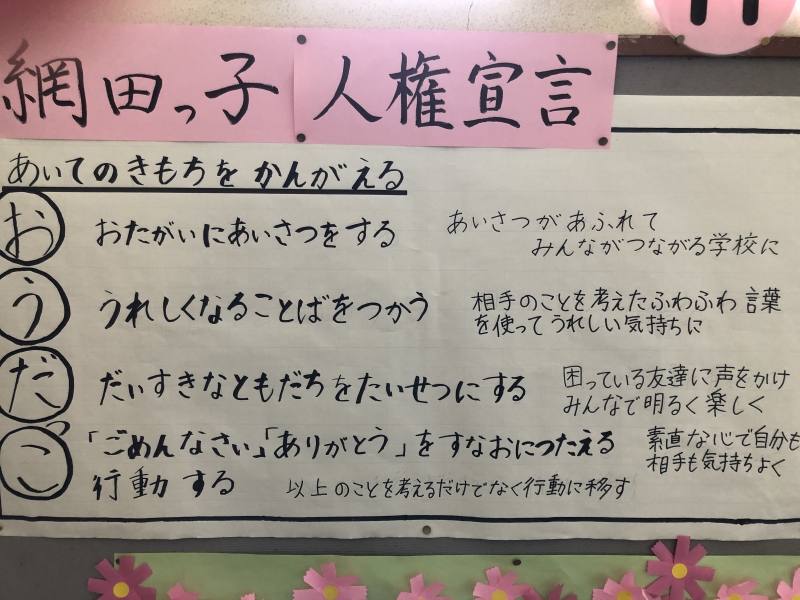 網田っ子 人権宣言
あいてのきもちを かんがえる
お おたがいにあいさつをする
あいさつがあふれて
みんながつながる学校に
う うれしくなることばをつかう
相手のことを考えたふわふわ言葉
を使ってうれしい気持ちに
だ だいすきなともだちをたいせつにする
困っている友達に声をかけ
みんなで明るく楽しく
ご 「ごめんなさい」「ありがとう」をすなおにつたえる
素直な心で自分も
相手も気持ちよく
行動する 以上のことを考えるだけでなく行動に移す